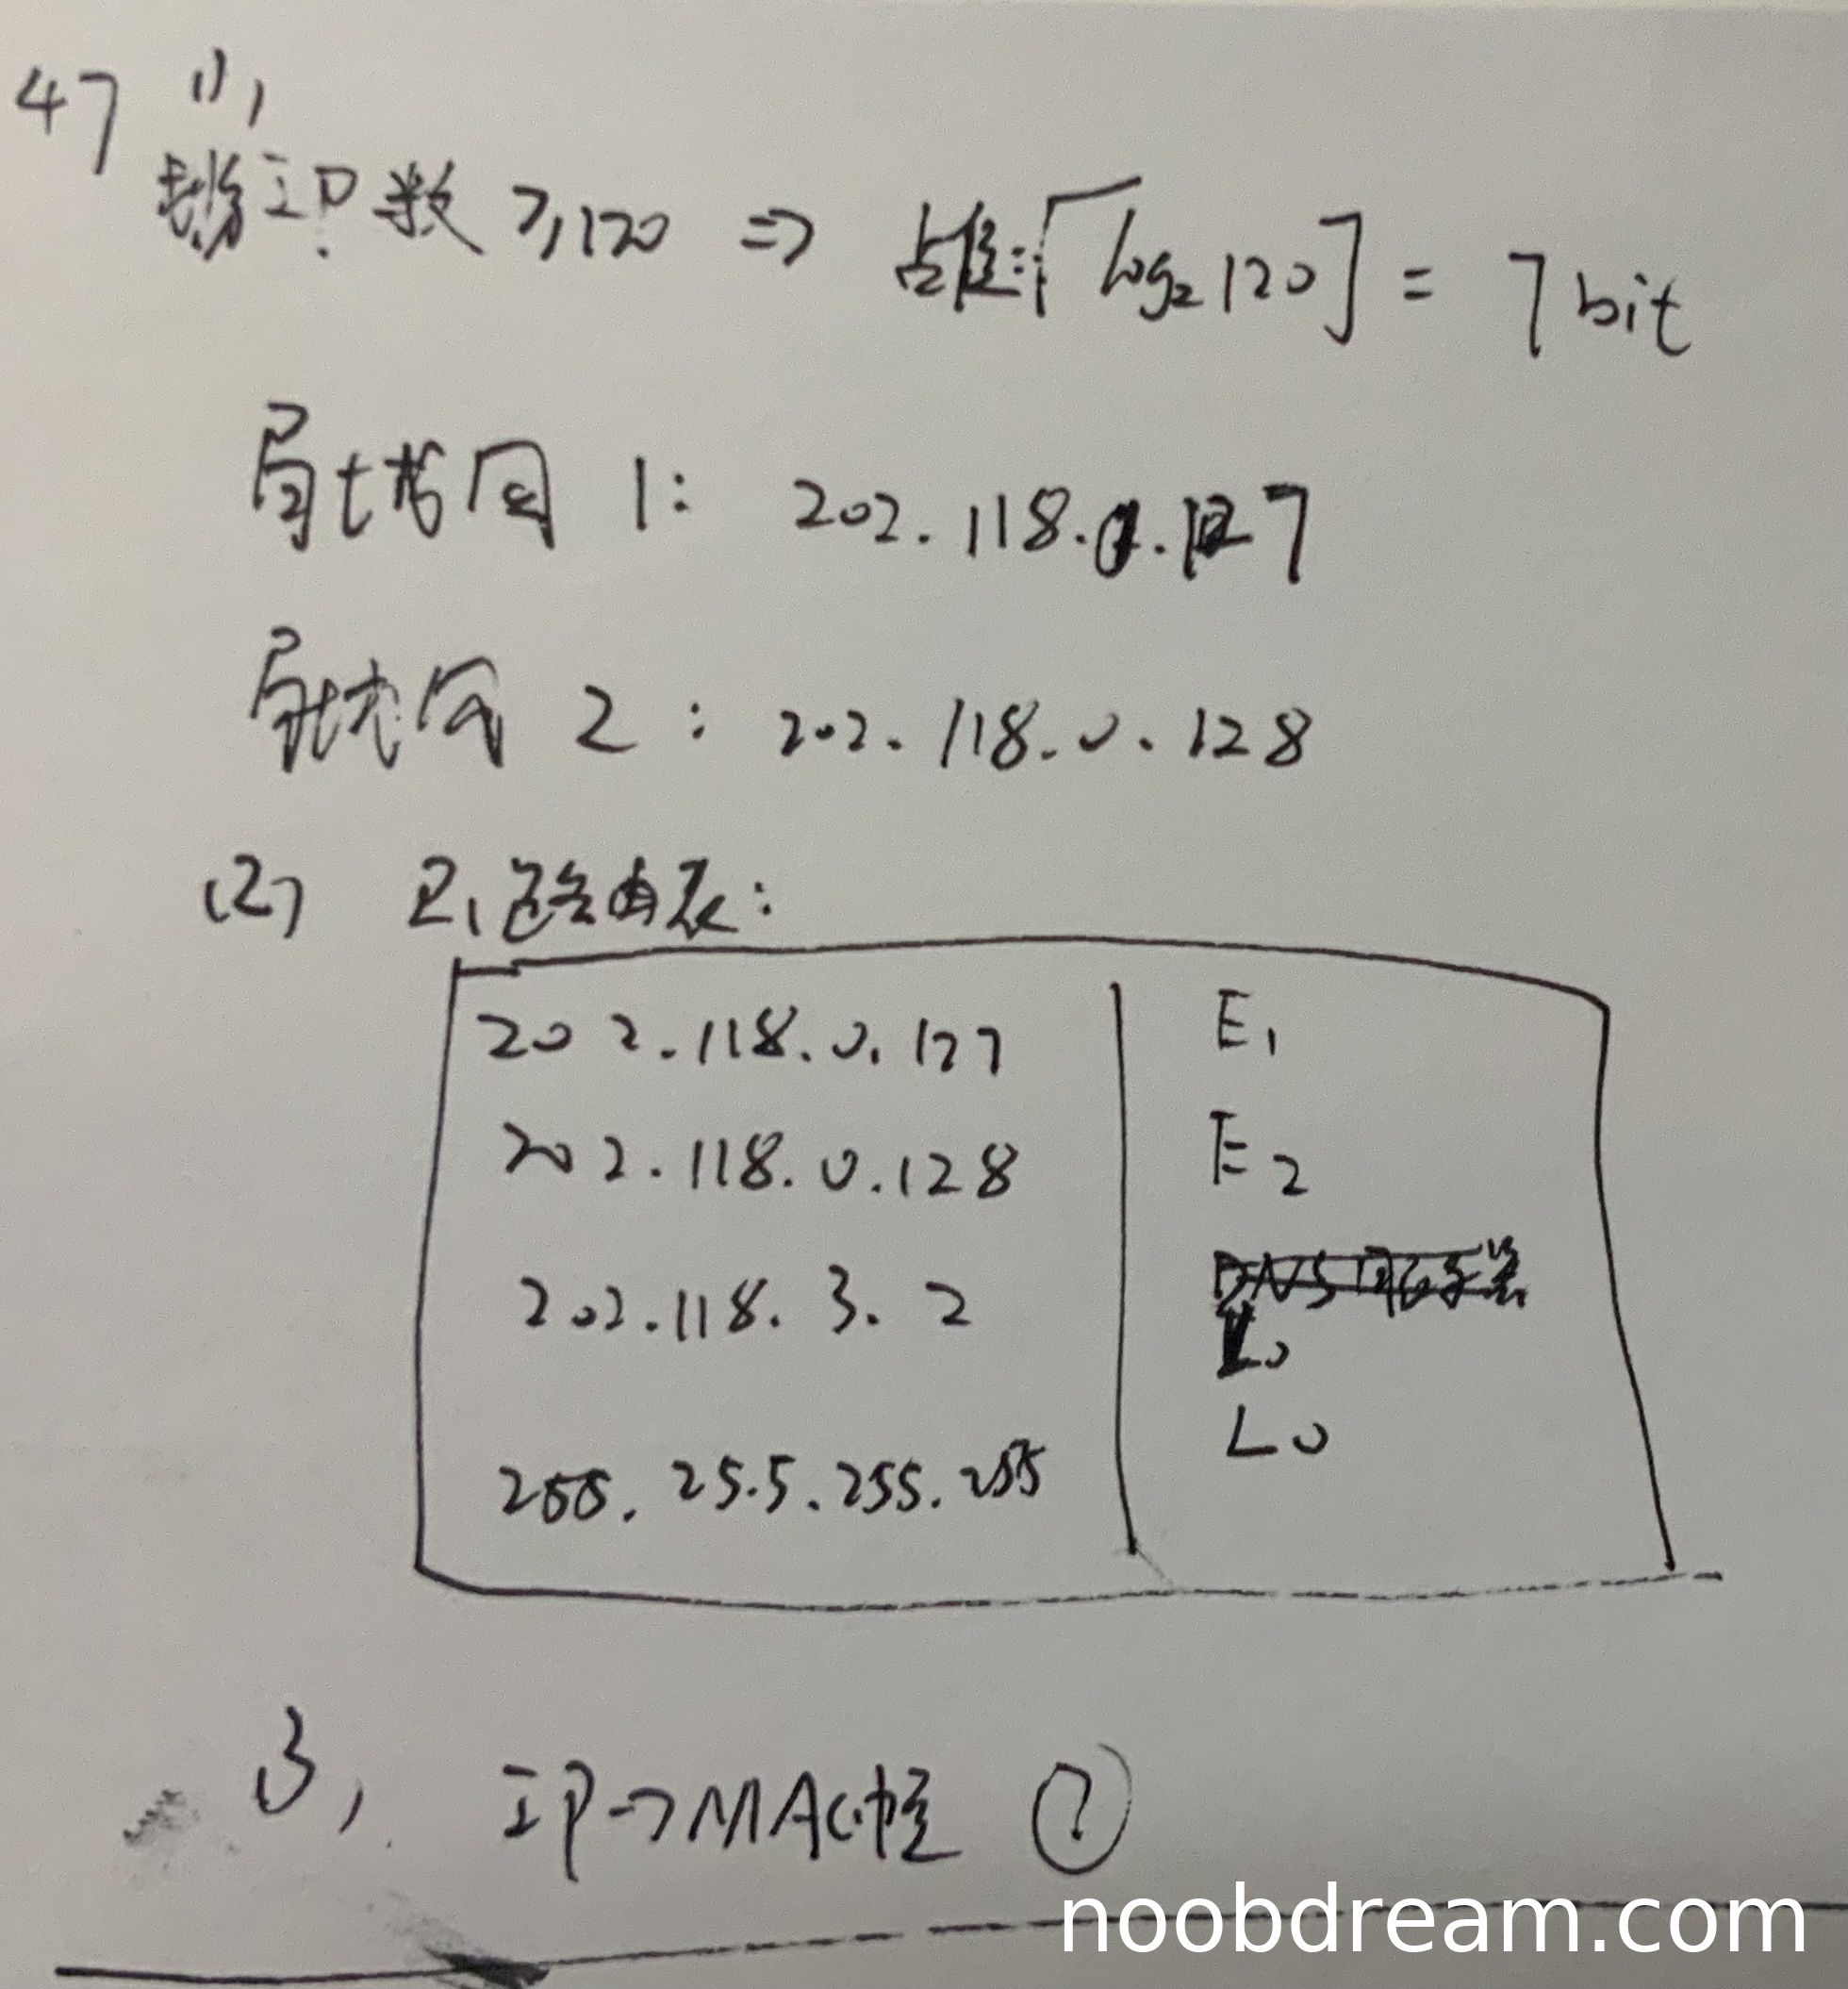 47 (1)
IP数 ≥120 => 占位:⌈log₂120⌉ = 7bit
局域网 1: 202.118.0.127
局域网 2: 202.118.0.128
(2) R₁路由表:
202.118.0.127 E₁
202.118.0.128 E₂
202.118.3.2 L0
255.25.5.255.255 L0
3, IP->MAC帧 ?
noobdream.com